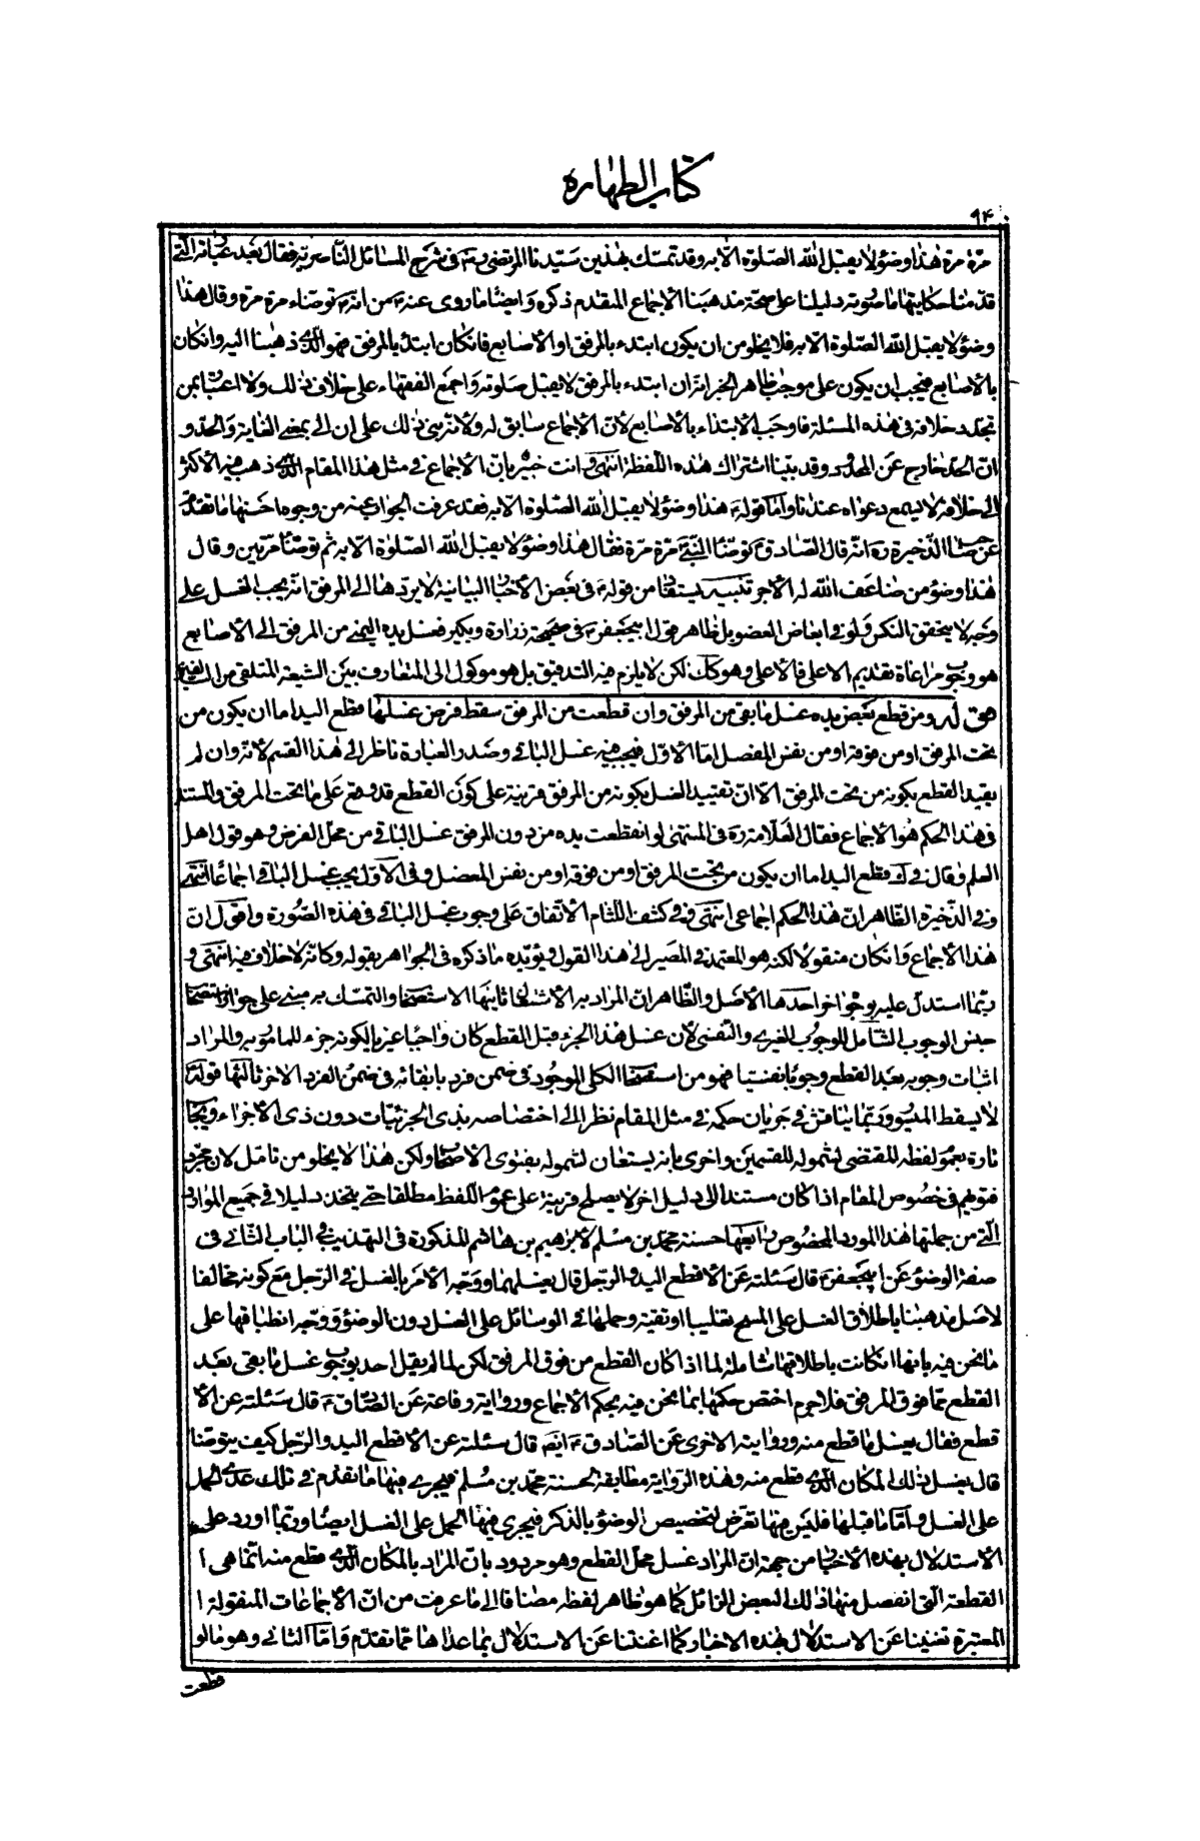 كتاب الطهاره
٩۴
مرة مرة هذا وضوء لا يقبل الله الصلوة الا به وقد تمسك بهذين سيدنا المرتضى ره في شرح المسائل الناصرية فقال بعد عبارته التي
قدمنا حكايتها ما صورته دليلنا على صحة مذهبنا الاجماع المتقدم ذكره وايضا ما روى عنه ص من انه ص توضاء مرة مرة وقال هذا
وضوء لا يقبل الله الصلوة الا به فلا يخلو من ان يكون ابتدء بالمرفق او الأصابع فان كان ابتدء بالمرفق فهو الذي ذهبنا اليه وان كان
بالأصابع فيجب ان يكون على موجب ظاهر الخبر انه ان ابتدء بالمرفق لا يقبل صلوته واجمع الفقهاء على خلاف ذلك ولا اعتبار بمن
تجدد خلافه في هذه المسئلة فاوجب الابتداء بالأصابع لأن الاجماع سابق له ولأنه بنى ذلك على ان الى بمعنى الغاية والحد و
ان الحد خارج عن المحدود وقد بينا اشتراك هذه اللفظة انتهى وانت خبير بان الاجماع في مثل هذا المقام الذي ذهب فيه الأكثر
الى خلافه لا يسمع دعواه عندنا واما قوله ص هذا وضوء لا يقبل الله الصلوة الا به فقد عرفت الجواب عنه من وجوه احسنها ما تقدم
عن صاحب الذخيرة ره انه قال الصادق ع توضأ النبي ص مرة مرة فقال هذا وضوء لا يقبل الله الصلوة الا به ثم توضأ مرتين وقال
هذا وضوء من ضاعف الله له الأجر تنبيه يستفاد من قوله ع في بعض الأخبار البيانية لا يردها الى المرفق انه يجب الغسل على
وجه لا يتحقق النكس ولو في ابعاض العضو بل ظاهر قول ابيجعفر ع في صحيحة زرارة وبكير فغسل يده اليمنى من المرفق الى الأصابع
هو وجوب مراعاة تقديم الاعلى فالأعلى وهو كك لكن لا يلزم فيه التدقيق بل هو موكول الى المتعارف بين الشيعة المتلقى من الشيعة
قوله ومن قطع بعض يده غسل ما بقى من المرفق وان قطعت من المرفق سقط فرض غسلها قطع اليد اما ان يكون من
تحت المرفق او من فوقه او من نفس المفصل اما الأول فيجب فيه غسل الباقي وصدر العبارة ناظر الى هذا القسم لأنه وان لم
يقيد القطع بكونه من تحت المرفق الا ان تقييد الغسل بكونه من المرفق قرينة على كون القطع قد وقع على ما تحت المرفق والمستند
في هذا الحكم هو الاجماع فقال العلامة ره في المنتهى لو انقطعت يده من دون المرفق غسل الباقي من محل الفرض وهو قول اهل
العلم وقال في ك قطع اليد اما ان يكون من تحت المرفق او من فوقه او من نفس المفصل وفي الأول يجب غسل الباقي اجماعًا انتهى
وفي الذخيرة الظاهر ان هذا الحكم اجماعي انتهى وفي كشف اللثام الاتفاق على وجوب غسل الباقي في هذه الصورة واقول ان
هذا الاجماع وان كان منقولا لكنه هو المعتمد في المصير الى هذا القول ويؤيده ما ذكره في الجواهر بقوله وكانه لا خلاف فيه انتهى و
ربما استدل عليه بوجوه اخر احدها الأصل والظاهر ان المراد به الأشتغال ثانيها الاستصحاب والتمسك به مبنى على جواز استصحاب
جنس الوجوب الشامل للوجوب الغيرى والنفسى لأن غسل هذا الجزء قبل القطع كان واجبا غيريا لكونه جزء للمامور به والمراد
اثبات وجوبه بعد القطع وجوبا نفسيا فهو من استصحاب الكلى الموجود في ضمن فرد بابقائه في ضمن الفرد الاخر ثالثها قوله ع
لا يسقط الميسور وربما يناقش في جريان حكمه في مثل المقام نظرا الى اختصاصه بذى الجزئيات دون ذى الأجزاء ويجاب
تارة بعموم لفظه المقتضى لشموله للقسمين واخرى بانه يستعان لشموله بفتوى الأصحاب ولكن هذا لا يخلو من تامل لان مجرد
فتويهم في خصوص المقام اذا كان مستندا الى دليل اخر لا يصلح قرينة على عموم اللفظ مطلقا حتى يتخذ دليلا في جميع الموارد
التي من جملتها هذا المورد المخصوص رابعها حسنة محمد بن مسلم لأبرهيم بن هاشم المذكورة في التهذيب في الباب الثاني في
صفة الوضوء عن ابيجعفر ع قال سئلته عن الأقطع اليد والرجل قال يغسلهما ووجه الأمر بالغسل في الرجل مع كونه مخالفا
لأصل مذهبنا باطلاق الغسل على المسح تغليبا او تقية وحملها في الوسائل على الغسل دون الوضوء ووجه انطباقها على
ما نحن فيه بانها ان كانت باطلاقها شاملة لما اذا كان القطع من فوق المرفق لكن لما لم يقل احد بوجوب غسل ما بقى بعد
القطع مما فوق المرفق فلا جرم اختص حكمها بما نحن فيه بحكم الاجماع ورواية رفاعة عن الصادق ع قال سئلته عن الأ
قطع فقال يغسل ما قطع منه وروايته الاخرى عن الصادق ع ايضا قال سئلته عن الأقطع اليد والرجل كيف يتوضأ
قال يغسل ذلك المكان الذي قطع منه وهذه الرواية مطابقة لحسنة محمد بن مسلم فيجرى فيها ما تقدم في تلك عدى الحمل
على الغسل واما ما قبلها فليس فيها تعرض لتخصيص الوضوء بالذكر فيجرى فيها الحمل على الغسل ايضا وربما اورد على
الأستدلال بهذه الأخبار من جهة ان المراد غسل محل القطع وهو مردود بان المراد بالمكان الذي قطع منه انما هي ا
القطعة التي انفصل منها ذلك البعض الزائل كما هو ظاهر لفظه مضافا الى ما عرفت من ان الأجماعات المنقولة ا
المعتبرة تغنينا عن الاستدلال بهذه الاخبار كما اغنتنا عن الاستدلال بما عداها مما تقدم واما الثاني وهو ما لو
قطعت